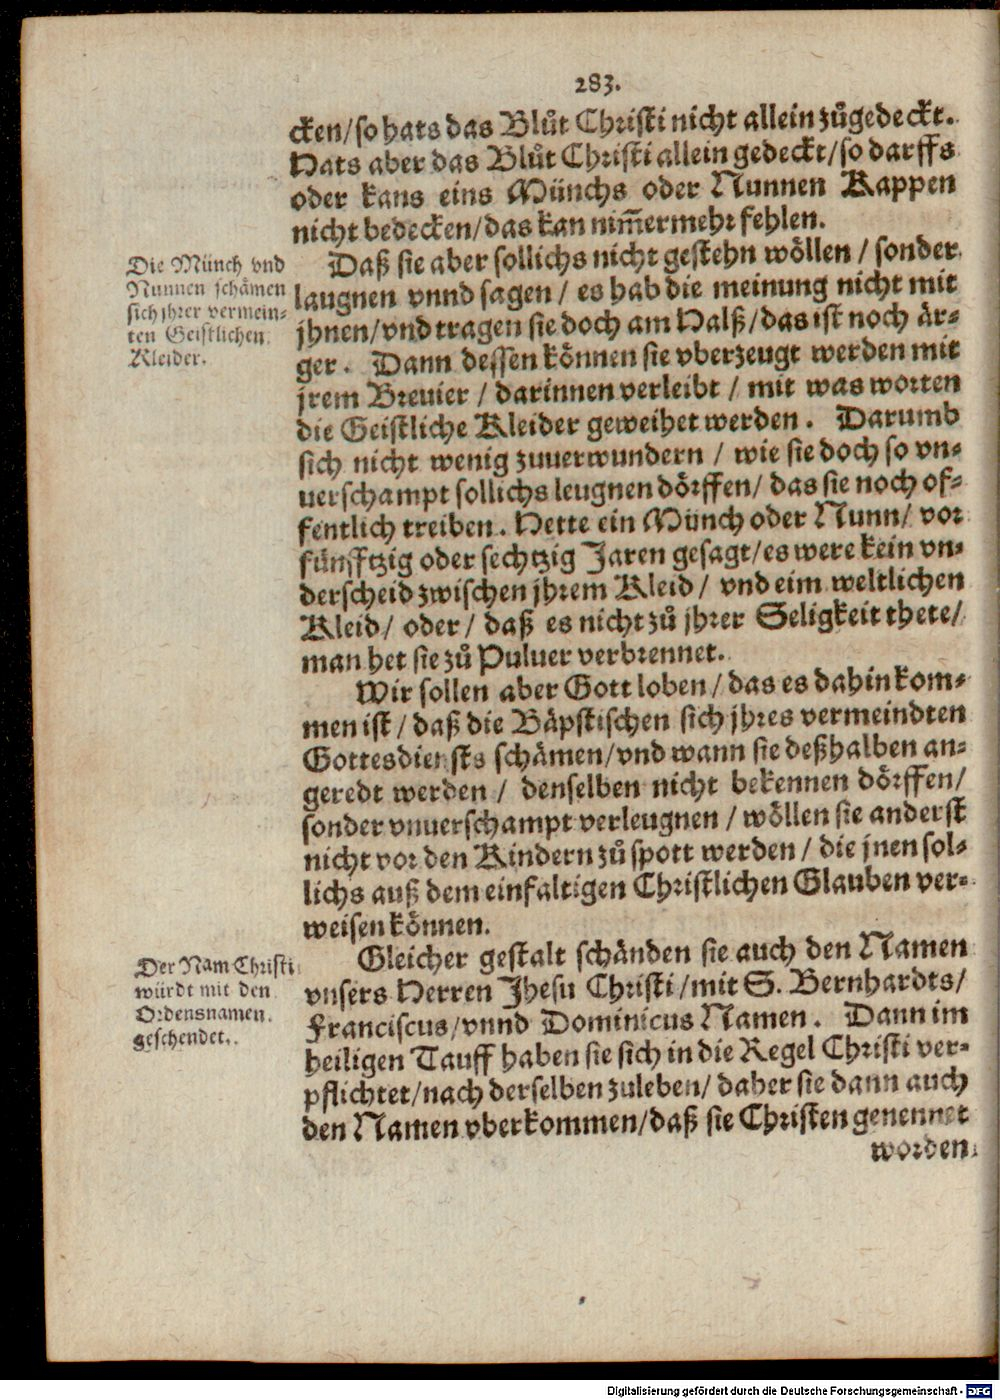 283.
cken/so hats das Blůt Christi nicht allein zůgedeckt.
Hats aber das Blůt Christi allein gedeckt/so darffs
oder kans eins Münchs oder Nunnen Kappen
nicht bedecken/das kan nim̃ermehr fehlen.
Die Münch vnd
Nunnen schämen
sich jhrer vermein-
ten Geistlichen
Kleider.
Daß sie aber sollichs nicht gestehn wöllen / sonder
laugnen vnnd sagen / es hab die meinung nicht mit
jhnen/vnd tragen sie doch am Halß/das ist noch är-
ger. Dann dessen können sie vberzeugt werden mit
jrem Breuier / darinnen verleibt / mit was worten
die Geistliche Kleider geweihet werden. Darumb
sich nicht wenig zuuerwundern / wie sie doch so vn-
uerschampt sollichs leugnen dörffen/ das sie noch of-
fentlich treiben. Hette ein Münch oder Nunn/ vor
fünfftzig oder sechtzig Jaren gesagt/es were kein vn-
derscheid zwischen jhrem Kleid / vnd eim weltlichen
Kleid/ oder / daß es nicht zů jhrer Seligkeit thete/
man het sie zů Puluer verbrennet.
Wir sollen aber Gott loben / das es dahin kom-
men ist / daß die Bäpstischen sich jhres vermeindten
Gottesdiensts schämen/vnd wann sie deßhalben an-
geredt werden / denselben nicht bekennen dörffen/
sonder vnuerschampt verleugnen / wöllen sie anderst
nicht vor den Kindern zů spott werden / die jnen sol-
lichs auß dem einfaltigen Christlichen Glauben ver-
weisen können.
Der Nam Christi
würdt mit den
Ordensnamen
geschendet.
Gleicher gestalt schänden sie auch den Namen
vnsers Herren Jhesu Christi /mit S. Bernhardts/
Franciscus/vnnd Dominicus Namen. Dann im
heiligen Tauff haben sie sich in die Regel Christi ver-
pflichtet/nach derselben zuleben/ daher sie dann auch
den Namen vberkommen/daß sie Christen genennet
worden
Digitalisierung gefördert durch die Deutsche Forschungsgemeinschaft - DFG